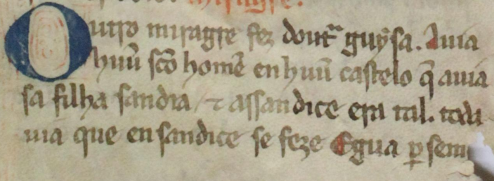 Outro miragre fez dout͛ guysa. Auia
huũ sc̃o homẽ en huũ castelo q̃ auia
sa filha sandia ⁊ assandice era tal. toda
uia que en sandice se feze Egua ꝑ sem